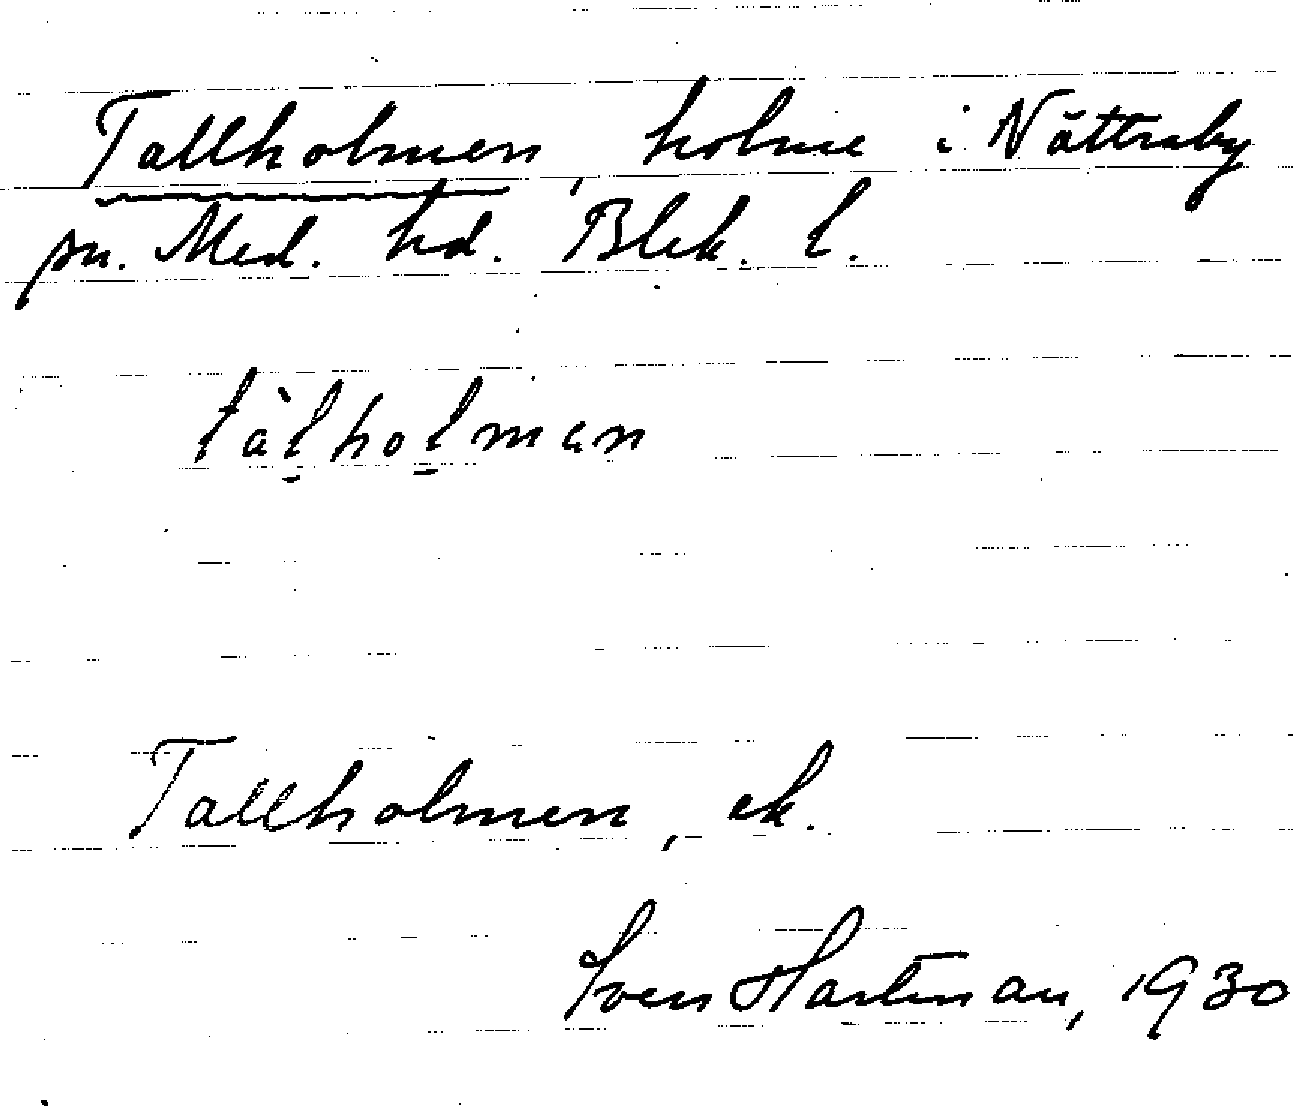 Tallholmen, holme i Nättraby
sn. Med. hd. Blek. l.
tàl̠hol̠man
Tallholmen, ek.
Sven Hartman, 1930